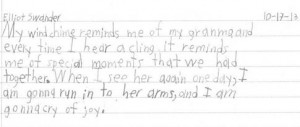 Elliot Swander 10-17-17
My windching reminds me of my granma and
every time I hear a cling it reminds
me of special moments that we had
together. When I see her again one day, I
am gonna run in to her arms, and I am
gonna cry of joy.